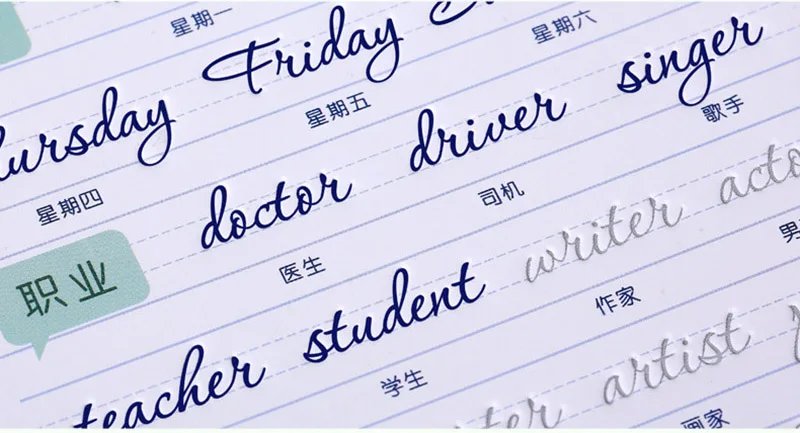 星期一 星期六
Friday
星期四 星期五
doctor driver singer
医生 司机 歌手
职业
teacher student writer
学生 作家
artist
画家